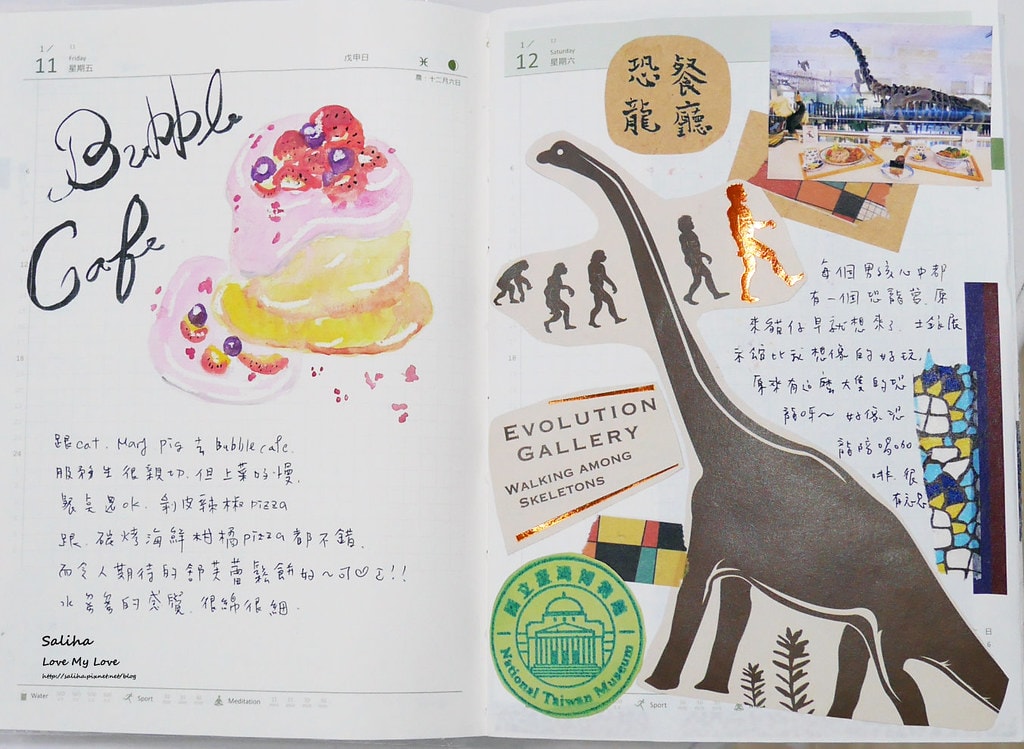 1/
11
11
Friday
星期五
戊申日
農:十二月六日
Bubble
Cafe
跟cat. Mary pig 去 Bubble cafe.
服務生很親切.但上菜好慢,
餐點還ok. 剝皮辣椒pizza
跟.碳烤海鮮柑橘pizza都不錯.
而令人期待的舒芙蕾鬆餅好~可♡！！
水 的感覺.很綿很細.
Saliha
Love My Love
http://saliha.pixnet.net/blog
Water
Sport
Meditation
1/
12
12
Saturday
星期六
恐龍
餐廳
每個男孩心中都
有一個恐龍當.原
來貓仔早就想來了 土銀展
示館比我想像的好玩.
原來有這麼大隻的恐
龍呀~ 好像恐
龍陪喝咖
啡.很
有意思
EVOLUTION
GALLERY
WALKING AMONG
SKELETONS
國立臺灣博物館
National Taiwan Museum
Sport
日